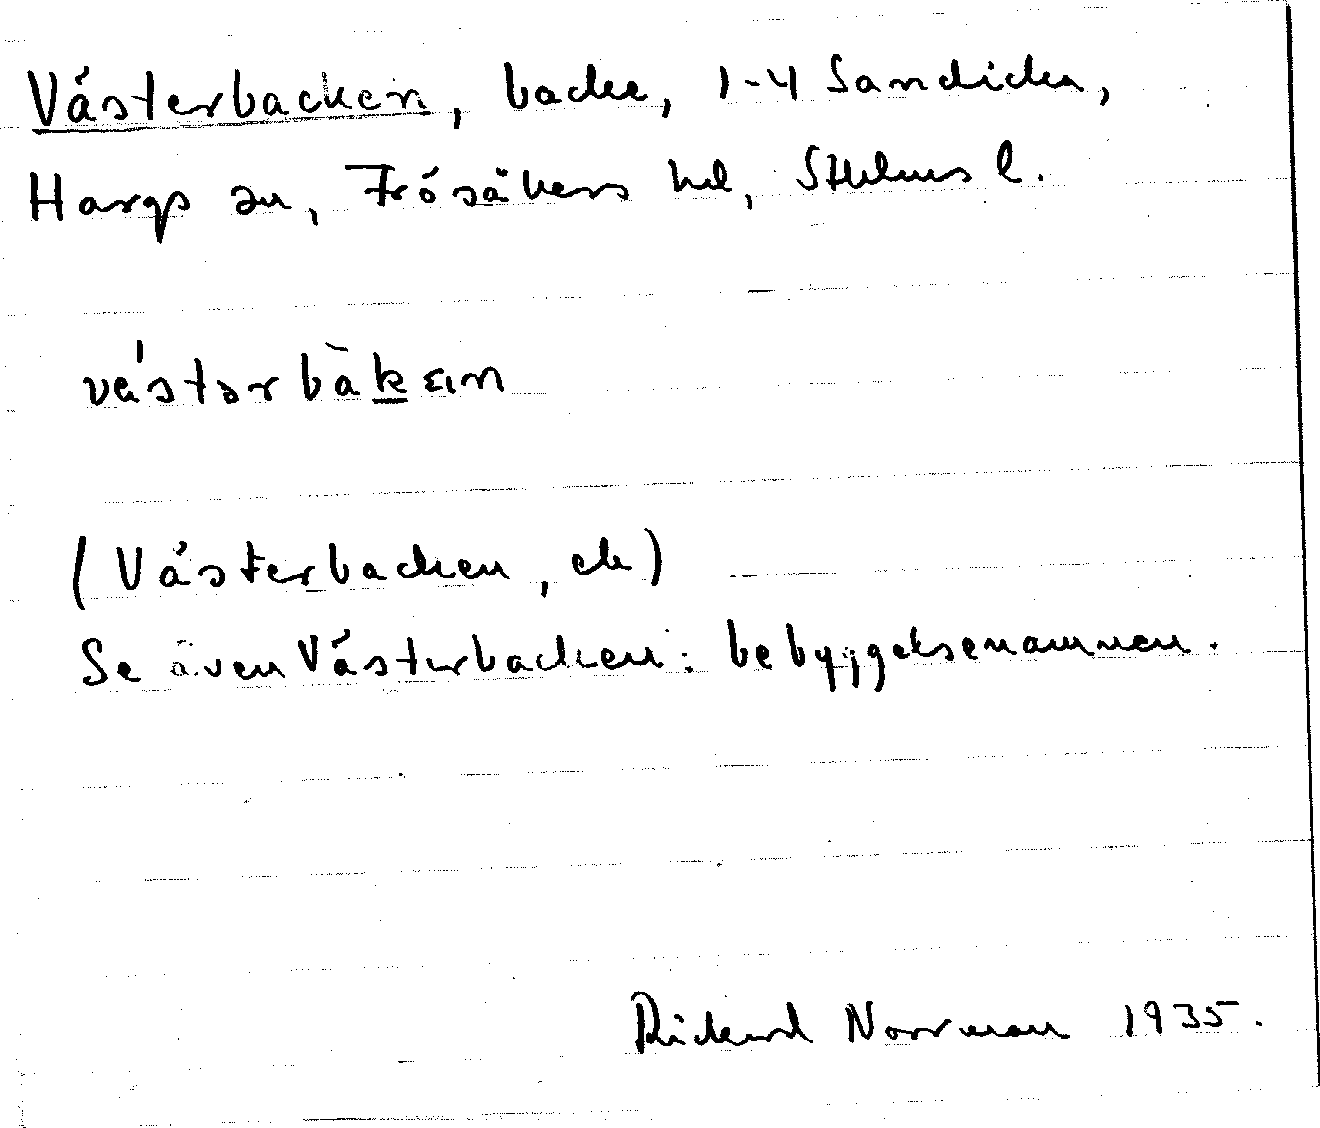 Västerbacken, backe, 1-4 Sandika,
Hargs sn, Frösåkers hd, Sthlms l.
västərbàkan
(Västerbacken, ek)
Se även Västerbacken: bebyggelsenamnen.
Rickard Norrman 1935.